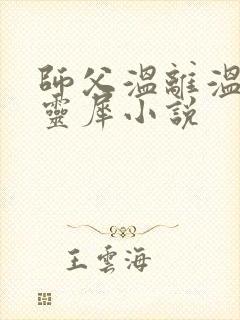 師父溫離溫
靈犀小說
王雲海